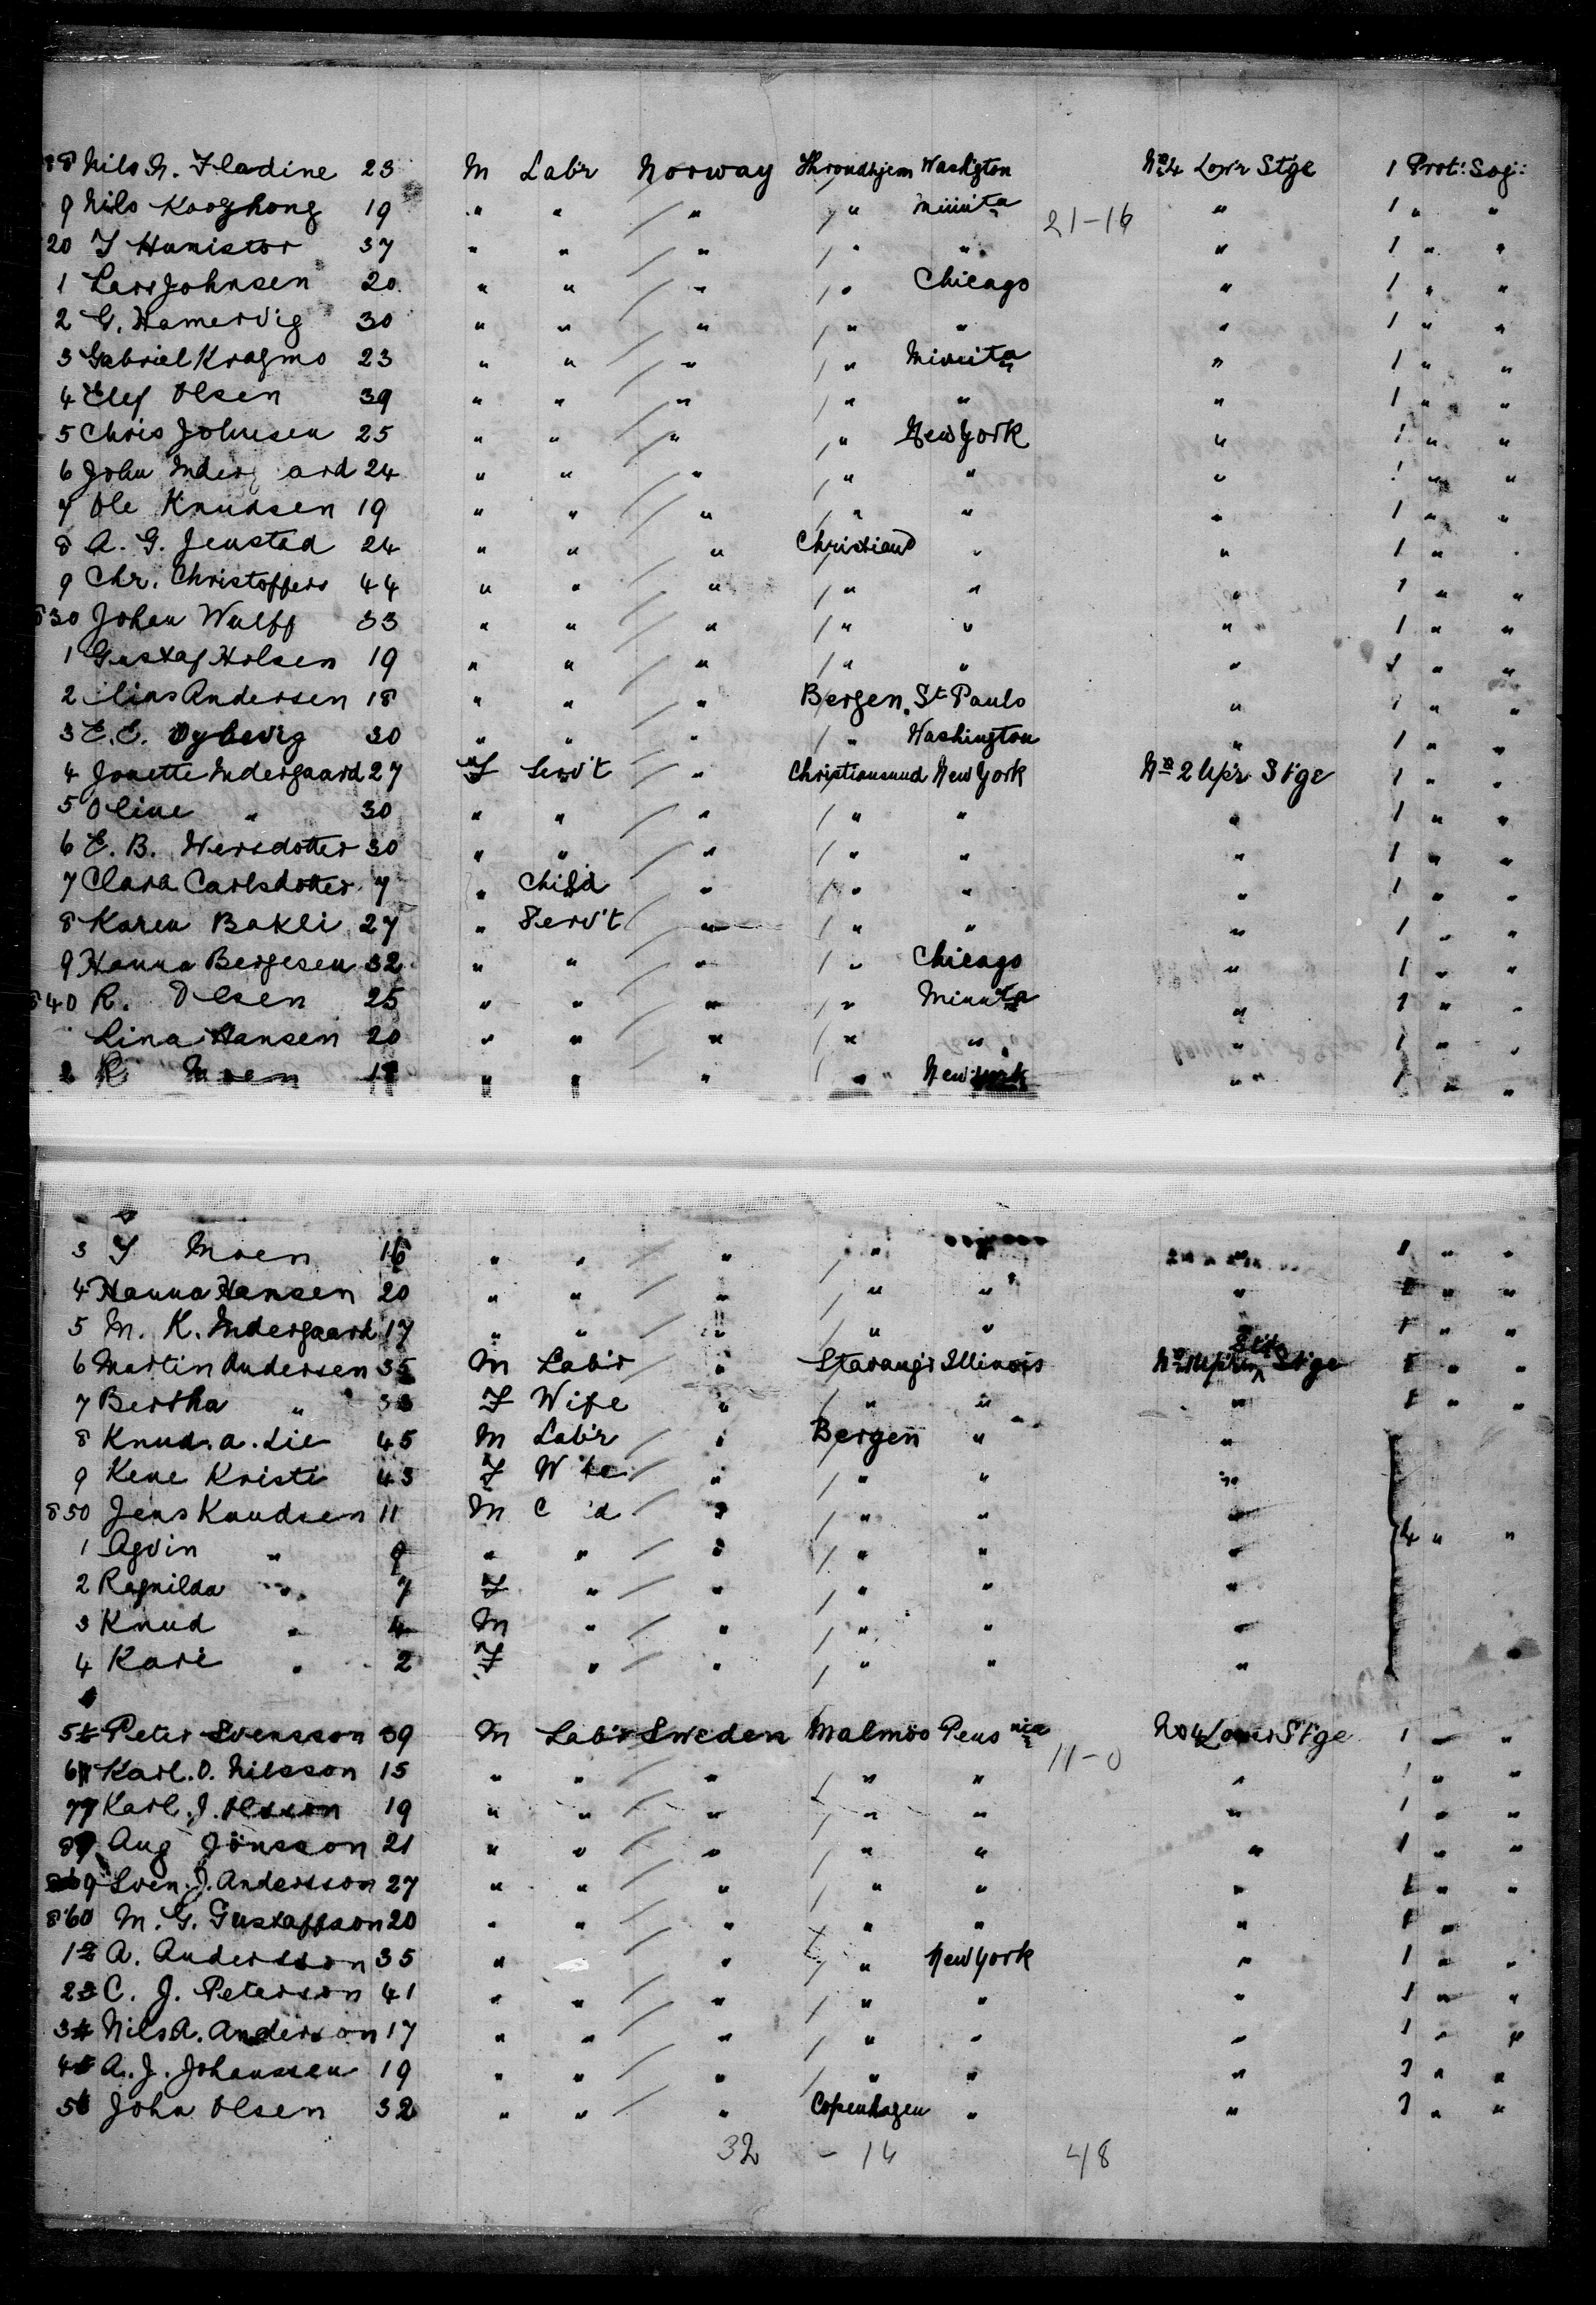 8 Nils N. Fladine 23 M Lab'r Norway Throndhjem Washgton No 4 Low'r Stge 1 Prot: Sog:
9 Nils 19 " " " " Minnta 21-16 " 1 " "
20 37 " " " " " " 1 " "
1 Lars Johnsen 20 " " " " Chicago " 1 " "
2 G. Hamervig 30 " " " " " " 1 " "
3 Gabriel Kragmo 23 " " " " Minnta " 1 " "
4 Elef Olsen 39 " " " " " " 1 " "
5 Chris Johnsen 25 " " " " New York " 1 " "
6 John Inderg ard 24 " " " " " " 1 " "
7 Ole Knudsen 19 " " " " " " 1 " "
8 A. G. Jenstad 24 " " " Christiansd " " 1 " "
9 Chr. Christoffers 44 " " " " " " 1 " "
830 Johan Wulff 33 " " " " " " 1 " "
1 Gustaf Holsen 19 " " " " " " 1 " "
2 lias Andersen 18 " " " Bergen St Pauls " 1 " "
3 E. E. Oybevig 30 " " " " Washington " 1 " "
4 Jonette Indergaard 27 F Serv't " Christiansund New York No 2 Up'r Stge 1 " "
5 Oline " 30 " " " " " " 1 " "
6 E. B. Wersdotter 30 " " " " " " 1 " "
7 Clara Carlsdotter 7 " Child " " " " 1 " "
8 Karen Bakli 27 " Serv't " " " " 1 " "
9 Hanna Bergesen 32 " " " " Chicago " 1 " "
840 R. Olsen 25 " " " " Minnta " 1 " "
Lina Hansen 20 " " " " " " 1 " "
2 R Moen 18 " " " " New York " 1 " "
3 Moen 16 " " " " " " 1 " "
4 Hanna Hansen 20 " " " " " " 1 " "
5 M. K. Indergaard 17 " " " " " " 1 " "
6 Martin Andersen 35 M Lab'r " Stavang'r Illinois Stge 1 " "
7 Bertha " 33 F Wife " " " " 1 " "
8 Knud. A. Lie 45 M Lab'r " Bergen " "
9 Kene Kristi 43 F W fe " " " "
850 Jens Knudsen 11 M C d " " " "
1 Agvin " 9 " " " " " " 4 " "
2 Ragnilda " 7 F " " " " "
3 Knud " 4 M " " " " "
4 Kari " 2 F " " " " "
5 Peter Svensson 39 M Lab'r Sweden Malmöo Pensnia 11-0 No 4 Lower Stge 1 " "
6 Karl. O. Nilsson 15 " " " " " " 1 " "
7 Karl. J. Olsson 19 " " " " " " 1 " "
8 Aug Jönsson 21 " " " " " " 1 " "
9 Sven. J. Andersson 27 " " " " " " 1 " "
860 M. G. Gustaffson 20 " " " " " " 1 "
1 A. Andersson 35 " " " New York " 1 " "
2 C. J. Peterson 41 " " " " " " 1 " "
3 Nils A. Anderson 17 " " " " " " 1 " "
4 A. J. Johanssen 19 " " " " " " 1 " "
5 John Olsen 32 " " " Copenhagen " " 1 " "
32 - 14 48